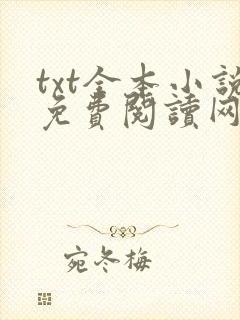 txt全本小说
免費閱讀网
宛冬梅